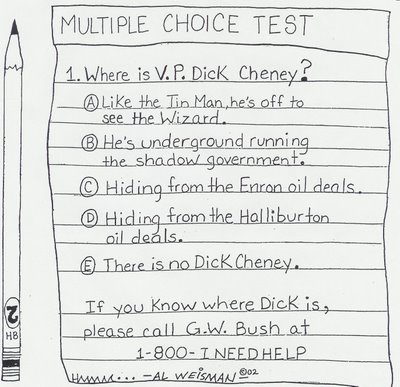 MULTIPLE CHOICE TEST
1. Where is V.P. Dick Cheney?
(A) Like the Tin Man, he's off to
see the Wizard.
(B) He's underground running
the shadow government.
(C) Hiding from the Enron oil deals.
(D) Hiding from the Halliburton
oil deals.
(E) There is no Dick Cheney.
If you know where Dick is,
please call G.W. Bush at
1-800-I NEED HELP
Hmmm... -AL WEISMAN ©02
2
HB